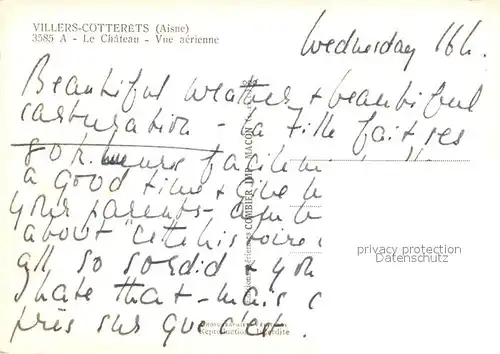 VILLERS-COTTERETS (Aisne)
3585 A - Le Château - Vue aérienne
Wednesday 16h.
Beautiful weather + beautiful
carburation - la fille fait ses
80 h. facilem
a good time + give
your parents -
about "cette histoire
all so sordid + you
hate that - mais c
près sur que c'est.
COMBIER IMP. MACON
privacy protection
Datenschutz
Reproduction Interdite